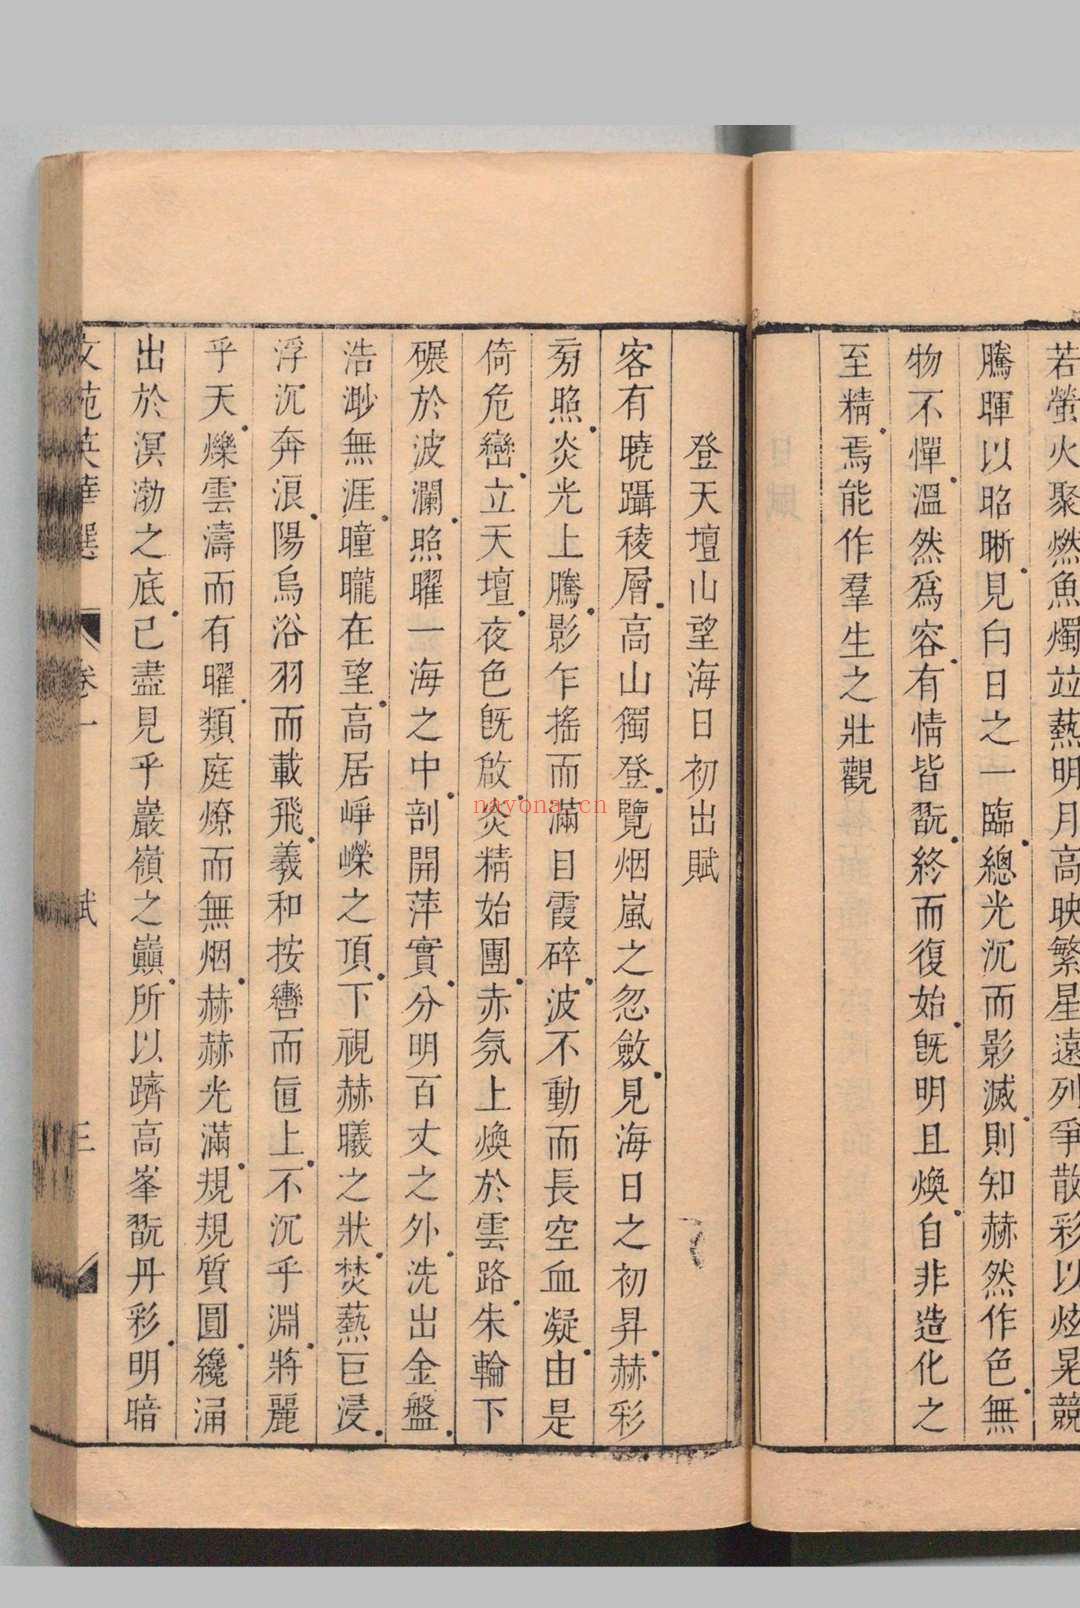 若螢火聚燃魚燭竝爇明月高映繁星遠列爭散彩以炫晃競
騰暉以昭晰見白日之一臨總光沉而影滅則知赫然作色無
物不憚溫然爲容有情皆翫終而復始旣明且煥自非造化之
至精焉能作羣生之壯觀
登天壇山望海日初出賦
客有曉躡稜層高山獨登覽烟嵐之忽斂見海日之初昇赫彩
旁照炎光上騰影乍搖而滿目霞碎波不動而長空血凝由是
倚危巒立天壇夜色旣啟炎精始團赤氛上煥於雲路朱輪下
碾於波瀾照曜一海之中剖開萍實分明百丈之外洗出金盤
浩渺無涯曈曨在望高居崢嶸之頂下視赫曦之狀焚爇巨浸
浮沉奔浪陽烏浴羽而載飛羲和按轡而直上不沉乎淵將麗
乎天爍雲濤而有曜類庭燎而無烟赫赫光滿規規質圓纔涌
出於溟渤之底已盡見乎巖嶺之巔所以躋高峯翫丹彩明暗
文苑英華選 卷一 賦 三
nayona.cn